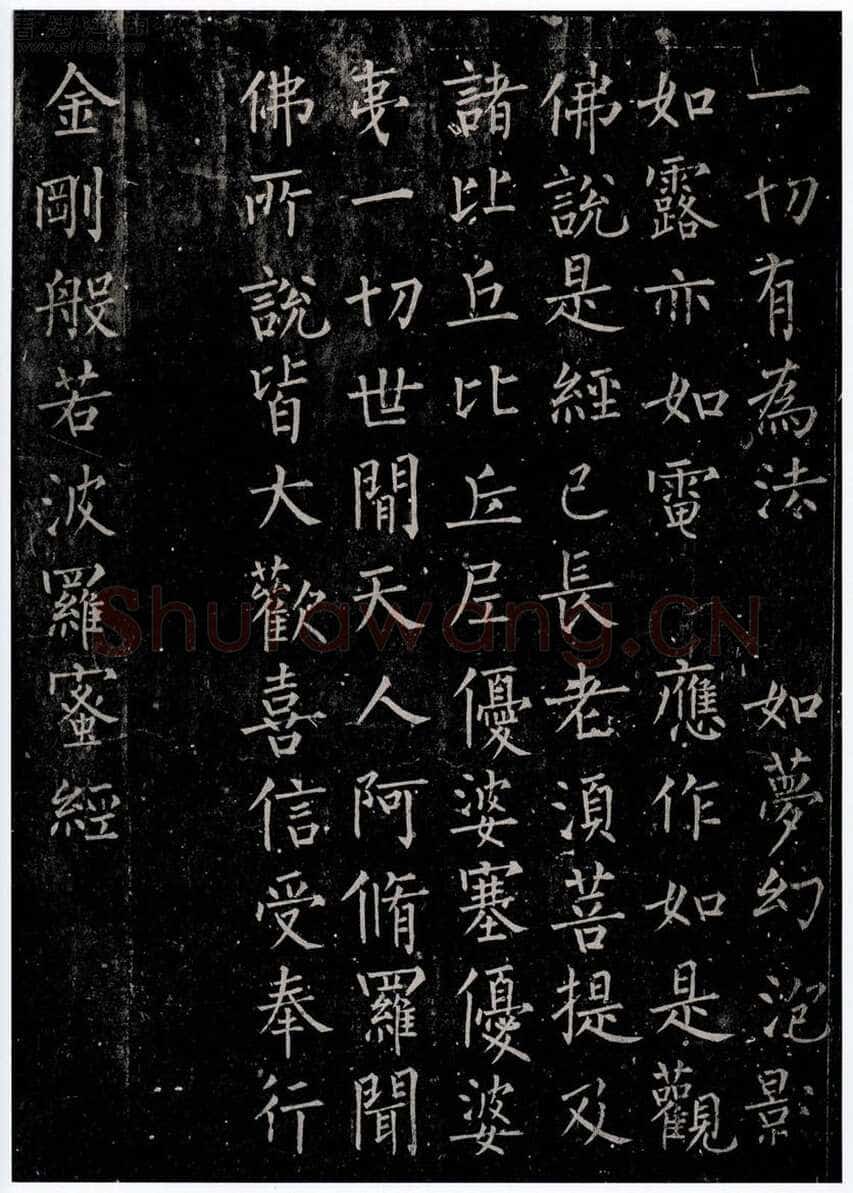 一切有為法　如夢幻泡影
如露亦如電　應作如是觀
佛說是經已長老須菩提及
諸比丘比丘尼優婆塞優婆
夷一切世間天人阿脩羅聞
佛所說皆大歡喜信受奉行
金剛般若波羅蜜經
Shufawang.CN